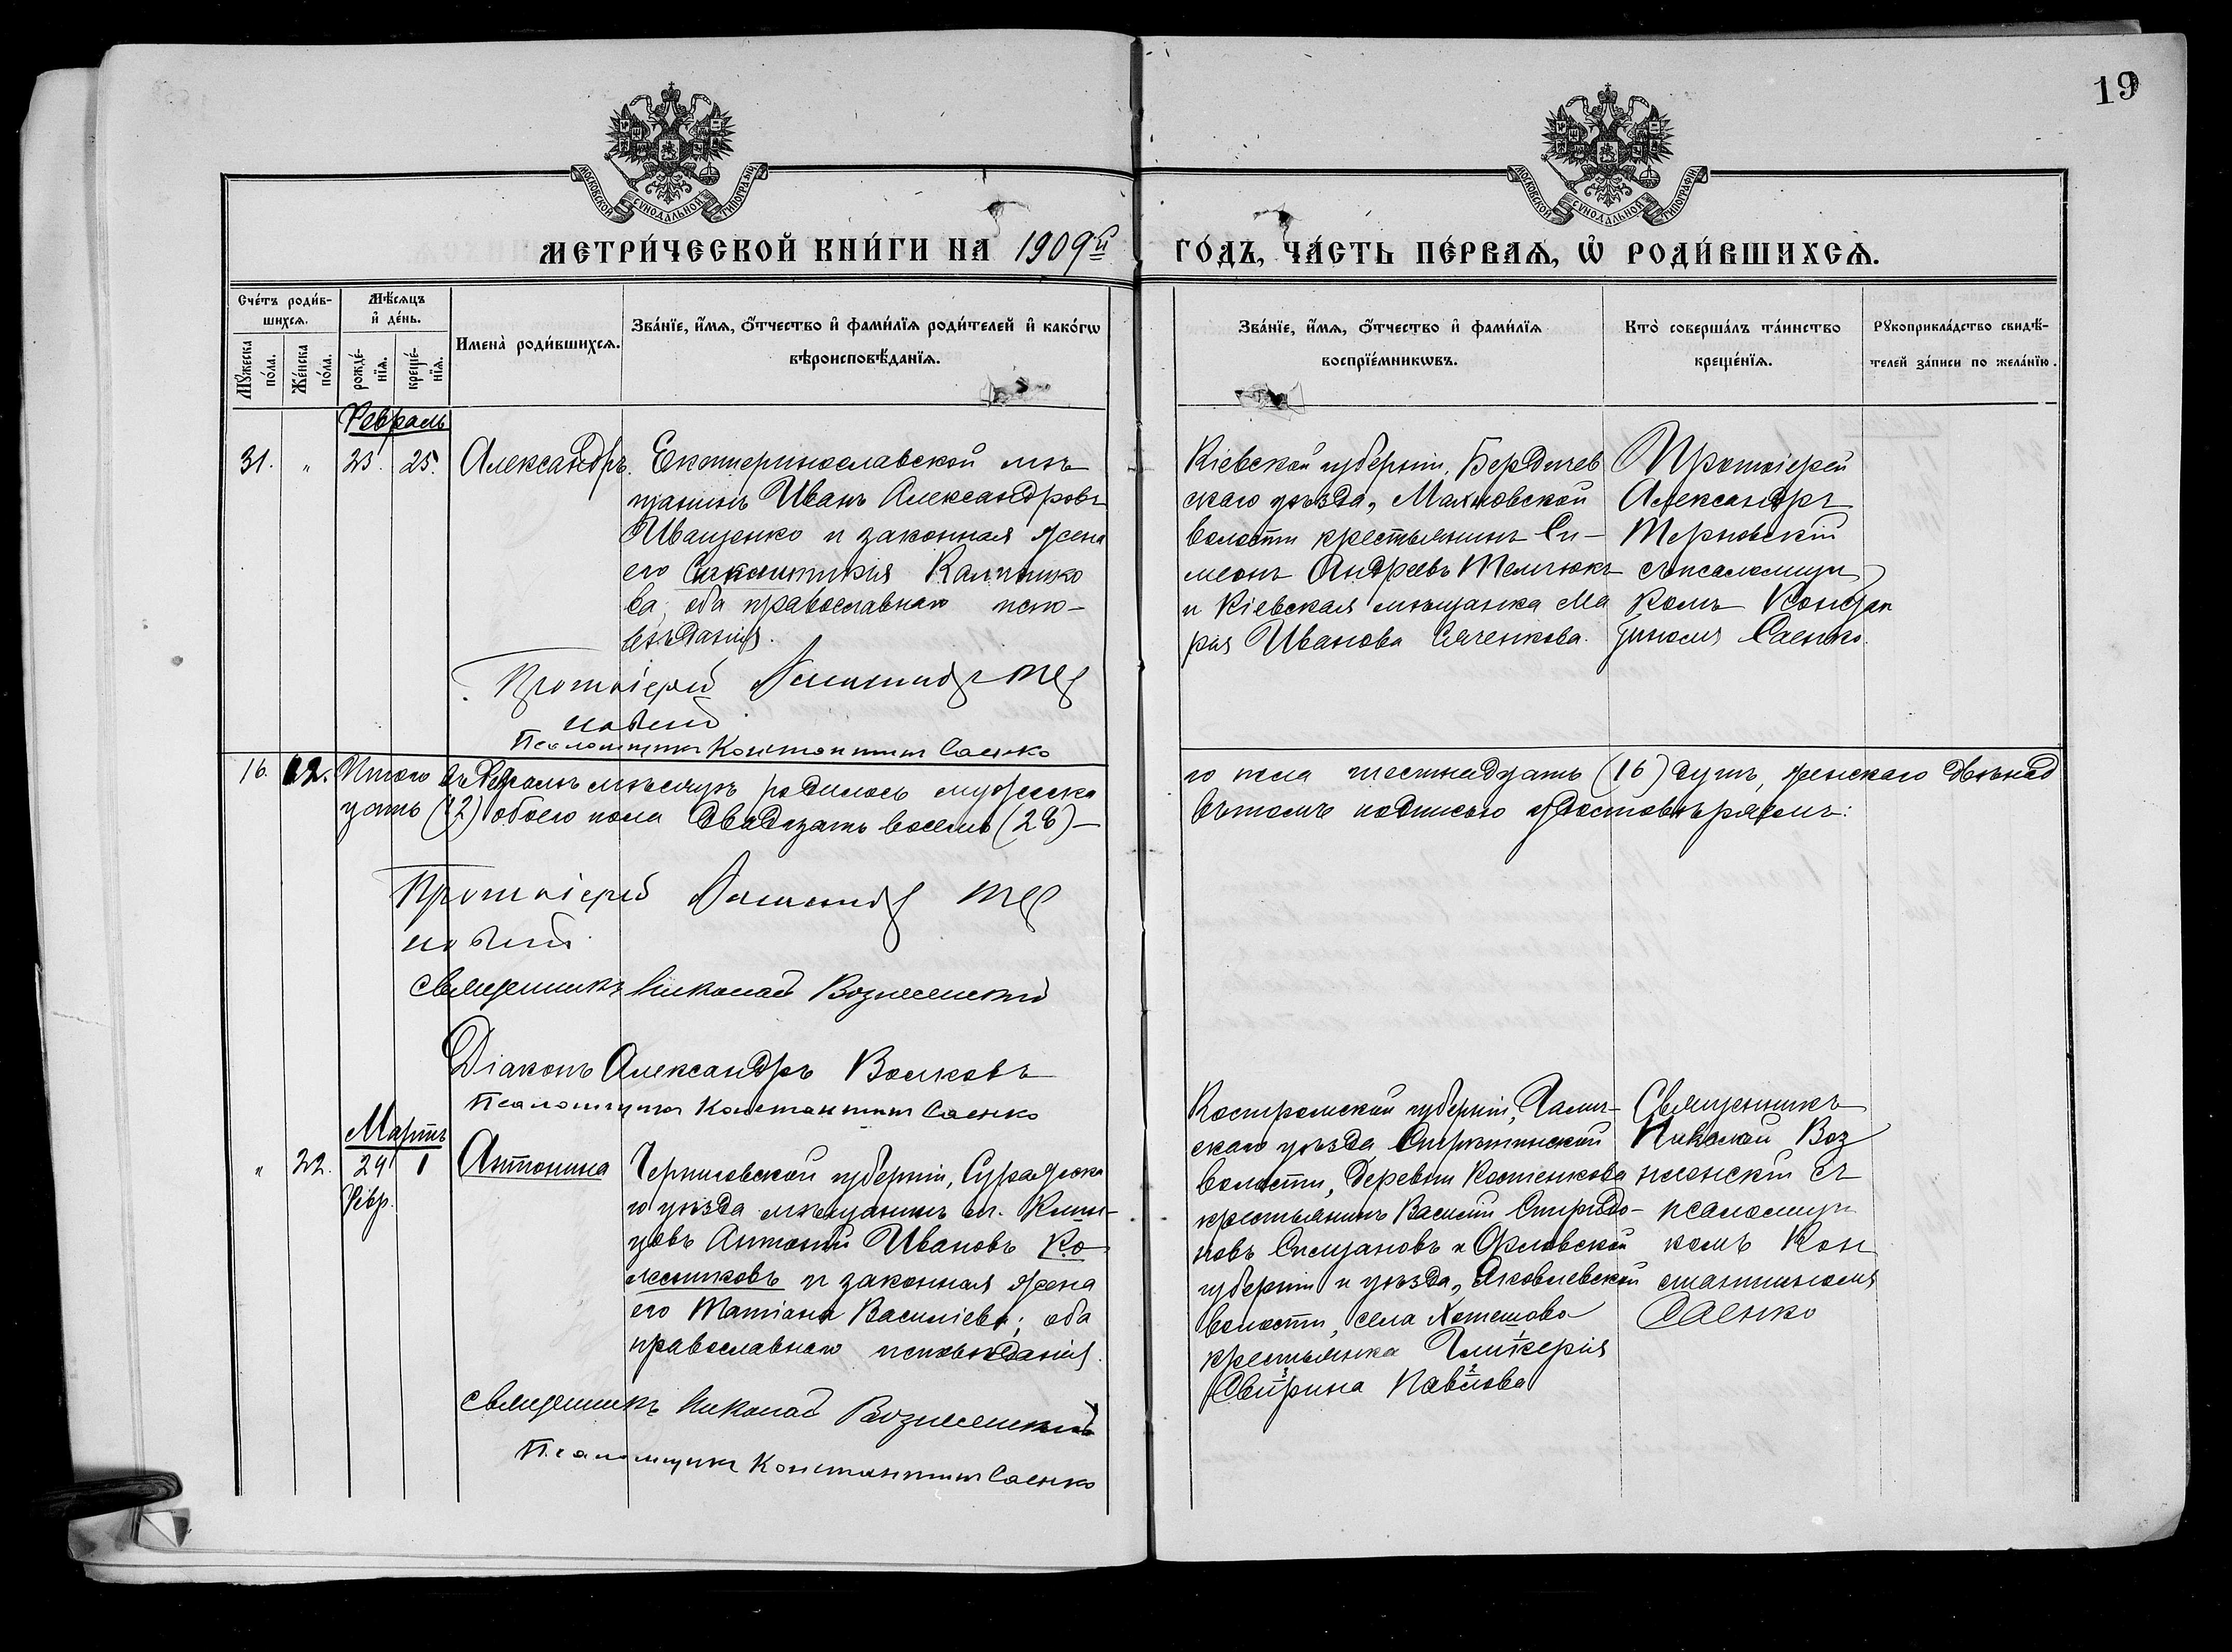 19
МОСКОВСКОЙ СѴНОДАЛЬНОЙ ТИПОГРАФІИ
МОСКОВСКОЙ СѴНОДАЛЬНОЙ ТИПОГРАФІИ
МЕТРИ́ЧЕСКОЙ КНИ́ГИ НА 1909й ГО́ДЪ, ЧА́СТЬ ПЕ́РВАѦ, Ѡ҆ РОДИ́ВШИХСѦ.
Сче́тъ роди́в-
шихсѧ.
Мꙋ́жеска
по́ла.
Же́нска
по́ла.
Мѣ́сѧцъ
и҆ де́нь.
рожде́-
нїѧ.
креще́-
нїѧ.
Имена̀ роди́вшихсѧ.
Зва́нїе, и҆́мѧ, ѻ҆́тчество и҆ фами́лїѧ роди́телей и҆ како́гѡ
вѣроисповѣ́данїѧ.
Зва́нїе, и҆́мѧ, ѻ҆́тчество и҆ фами́лїѧ
воспрїе́мникѡвъ.
Кто̀ соверша́лъ та́инство
креще́нїѧ.
Рꙋкоприкла́дство свидѣ́-
телей за́писи по жела́нїю.
Февраль
31. " 23. 25. Александръ.
Екатеринославской мѣ
щанинъ Иванъ Александровъ
Иващенко и законная жена
его
ва, оба православнаго испо-
вѣданія.
Протоіерей Александръ Тер
новскій
Псаломщикъ Константинъ Саенко
Кіевской губерніи, Бердичев
скаго уѣзда, Махновской
волости крестьянинъ Си-
меонъ Андреевъ Мельчюкъ
и Кіевская мѣщанка Ма
рія Иванова
Протоіерей
Александръ
Терновскій
съ псаломщи
комъ Констан
тиномъ Саенко.
16. 12. Итого въ Февралѣ мѣсяцѣ родилось мужеска
го пола шестнадцать (16) душъ, женскаго двѣнад
цать (12) обоего пола двадцать восемь (28) —
въ томъ подписью удостовѣряемъ:
Протоіерей Александръ Тер
новскій
Священникъ Николай Вознесенскій
Діаконъ Александръ Волковъ
Псаломщикъ Константинъ Саенко
Мартъ
" 22. 24 1 Антонина
Февр.
Черниговской губерніи, Суражска
го уѣзда мѣщанинъ м. Клин-
цовъ Антоній Ивановъ Ко
лесниковъ и законная жена
его Татіана Василіева; оба
православнаго исповѣданія.
Священникъ Николай Вознесенскій
Псаломщикъ Константинъ Саенко
Костромской губерніи, Галич-
скаго уѣзда,
волости, деревни Костенкова
крестьянинъ Василій Спиридо-
новъ Степановъ и Орловской
губерніи и уѣзда, Яковлевской
волости, села Хотетово
крестьянка Гликерія
Свирина Павлова
Священникъ
Николай Воз
несенскій съ
псаломщи
комъ Кон
стантиномъ
Саенко